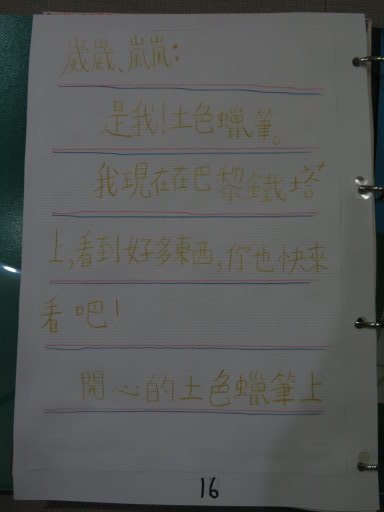 崴崴、嵐嵐:
是我!土色蠟筆。
我現在在巴黎鐵塔
上,看到好多東西,你也快來
看吧!
開心的土色蠟筆上
16